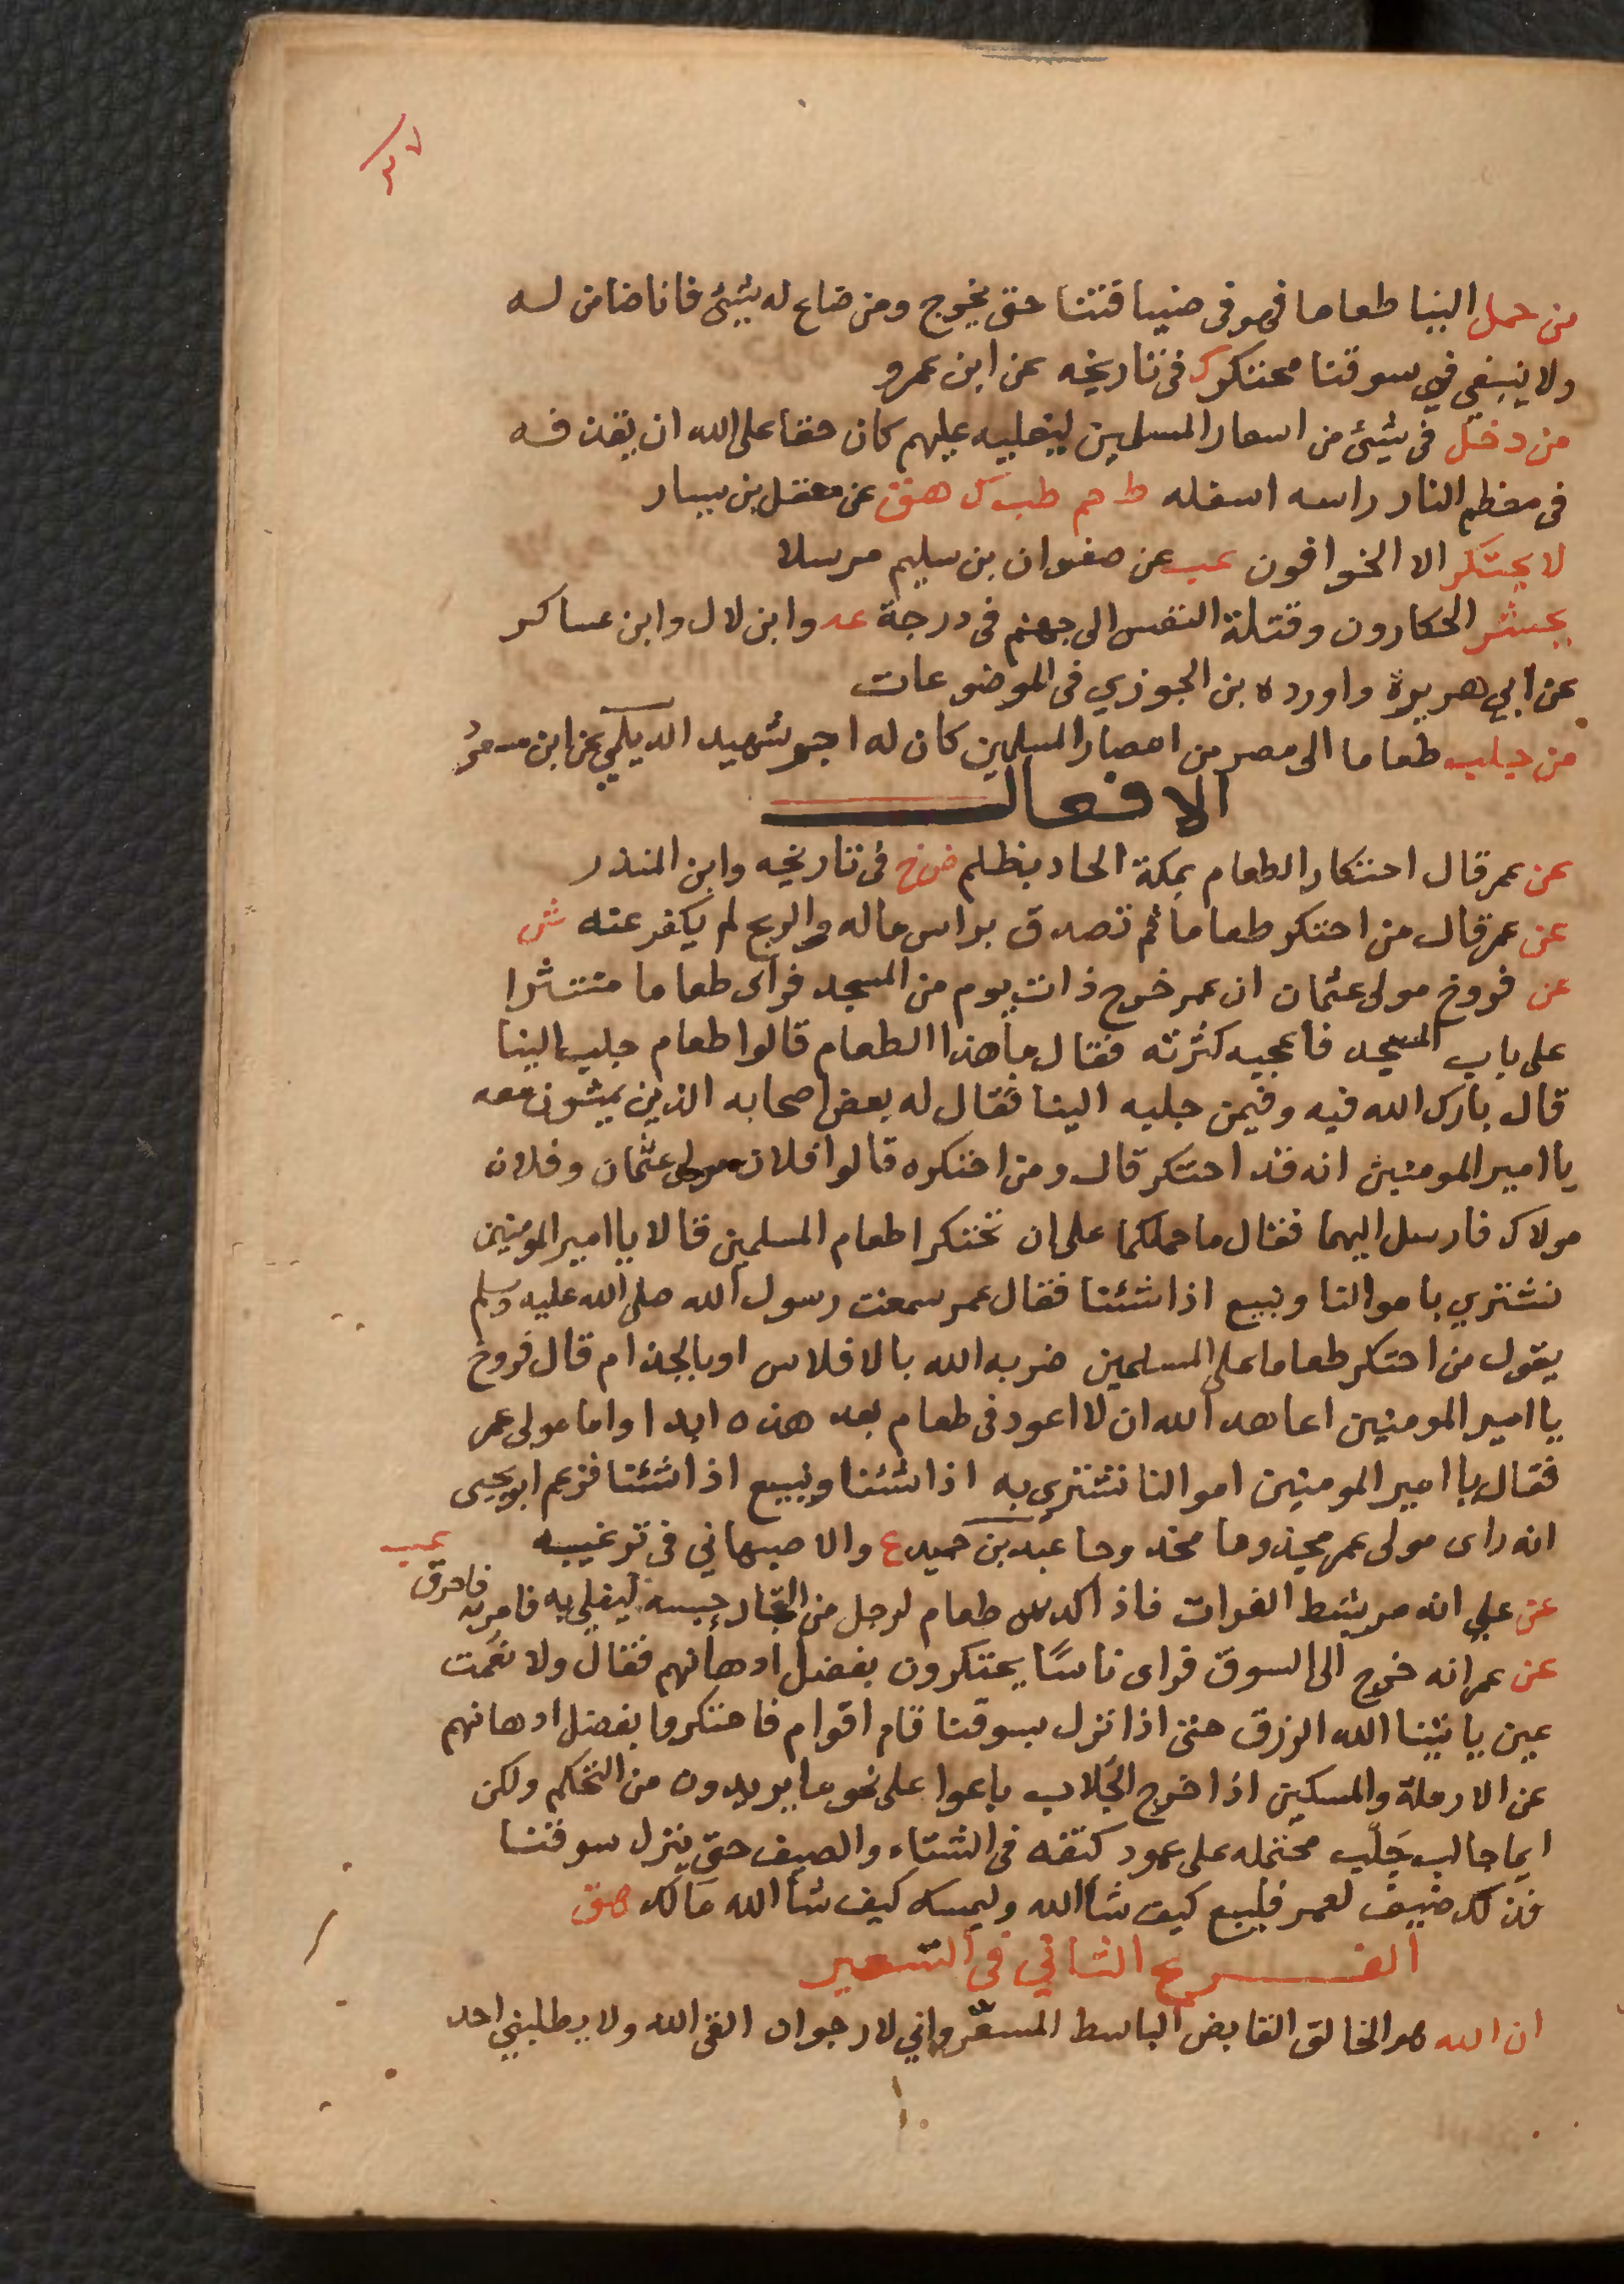 ٣٧
من حمل الينا طعاما فهو فى ضيافتنا حتى يخرج ومن ضاع له شيئ فانا ضامن له
ولا ينبغي في سوقنا محتكر ك فى تاريخه عن ابن عمرو
من دخل فى شيئ من اسعار المسلمين ليغليه عليهم كان حقا على الله ان يقذفه
فى معظم النار راسه اسفله ط حم طب ك هق عن معقل بن يسار
لا يحتكر الا الخوافون عب عن صفوان بن سليم مرسلا
يحشر الحكارون وقتلة النفس الى جهنم فى درجة عد وابن لال وابن عساكر
عن ابي هريرة واورده بن الجوزي فى الموضوعات
من جلب طعاما الى مصر من امصار المسلمين كان له اجر شهيد الديلمي عن ابن مسعود
الافعال
عن عمر قال احتكار الطعام بمكة الحاد بظلم ص خ فى تاريخه وابن المنذر
عن عمر قال من احتكر طعاما ثم تصدق براس ماله والربح لم يكفر عنه ش
عن فروخ مولى عثمان ان عمر خرج ذات يوم من المسجد فرأى طعاما منتثرا
على باب المسجد فاعجبه كثرته فقال ما هذا الطعام قالوا طعام جلب الينا
قال بارك الله فيه وفيمن جلبه الينا فقال له بعض اصحابه الذين يمشون معه
يا امير المومنين انه قد احتكر قال ومن احتكره قالوا فلان مولى عثمان وفلان
مولاك فارسل اليهما فقال ما حملكما على ان تحتكرا طعام المسلمين قالا يا امير المومنين
نشتري باموالنا ونبيع اذا شئنا فقال عمر سمعت رسول الله صلى الله عليه وسلم
يقول من احتكر طعاما على المسلمين ضربه الله بالافلاس او بالجذام قال فروخ
يا امير المومنين اعاهد الله ان لا اعود فى طعام بعد هذه ابدا واما مولى عمر
فقال يا امير المومنين اموالنا نشتري به اذا شئنا ونبيع اذا شئنا فزعم ابو يحيى
انه راى مولى عمر مجذوما مخدوجا عبد بن حميد ع والاصبهاني فى ترغيبه
عن علي انه مر بشط الفرات فاذا كدس طعام لرجل من التجار حبسه ليغلي به فامر به فاحرق عب
عن عمر انه خرج الى السوق فراى ناسًا يحتكرون بفضل ادهانهم فقال ولا نعمت
عين ياتينا الله الرزق حتى اذا نزل بسوقنا قام اقوام فاحتكروا بفضل ادهانهم
عن الارملة والمسكين اذا خرج الجلاب باعوا على نحو ما يريدون من التحكم ولكن
ايما جالب جَلَب محتمله على عمود كتفه فى الشتاء والصيف حتى ينزل سوقنا
فذلك ضيف لعمر فليبع كيف شأ الله وليمسك كيف شأ الله مالك هق
الفرع الثاني فى التسعير
ان الله هو الخالق القابض الباسط المسعّر واني لارجوان القى الله ولا يطلبني احد